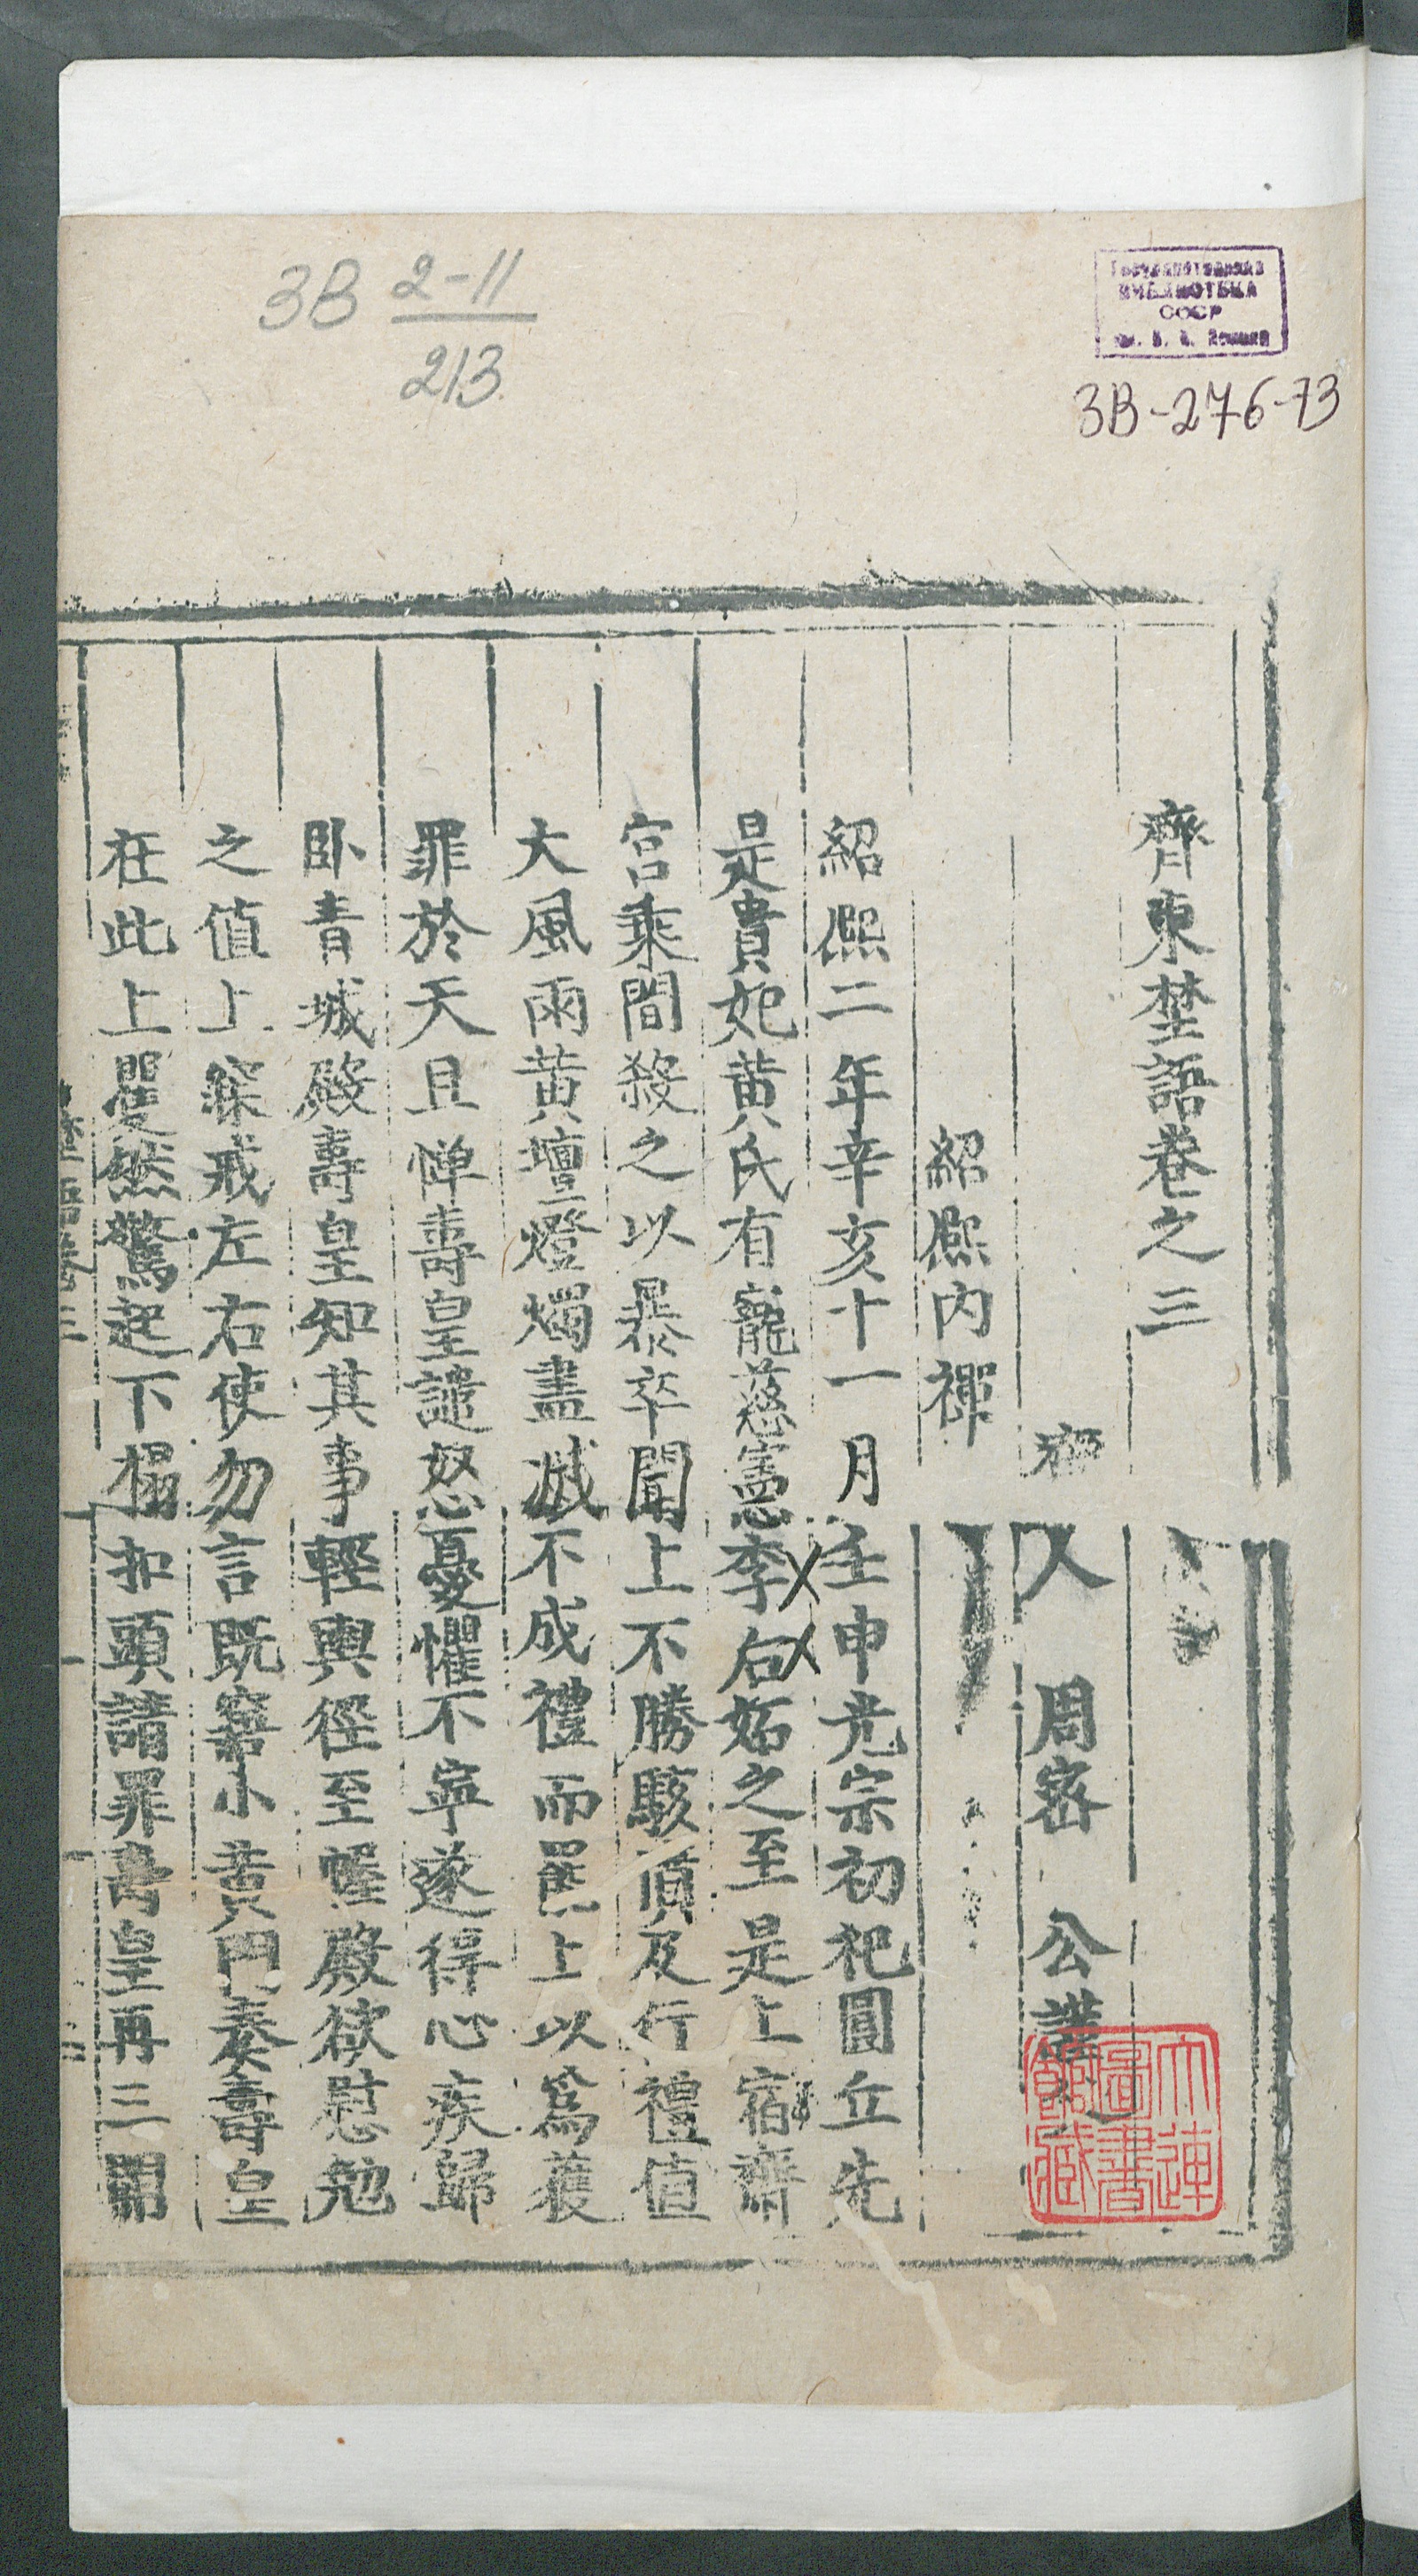 3В 2-11
213
Государственная
БИБЛИОТЕКА
СССР
им. В. И. Ленина
3В-276-73
齊東埜語卷之三
齊人 周密 公謹
紹熈内禪
紹熈二年辛亥十一月壬申光宗初祀圓丘先
是貴妃黄氏有寵慈憲李后妬之至是上宿齋
宫乘間殺之以暴卒聞上不勝駭憤及行禮值
大風雨黄壇燈燭盡滅不成禮而罷上以爲獲
罪於天且憚壽皇譴怒憂懼不寧遂得心疾歸
卧青城殿壽皇知其事輕輿徑至幄殿欲慰勉
之值上寐戒左右使勿言既寤小黄門奏壽皇
在此上矍然驚起下榻扣頭請罪壽皇再三開
埜語卷三
大連
圖書
館藏